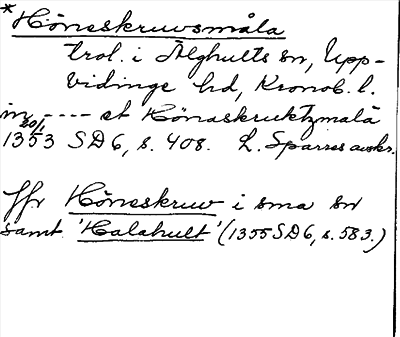 * Höneskruvsmåla
trol. i Älghults sn, Upp-
vidinge hd, Kronob. l.
in ---- et Hönaskruktzmala
20/1 1353 SD6, s. 408. L. Sparres avskr.
Jfr Höneskruv i sma sn
samt 'Halahult' (1355 SD6, s. 583.)